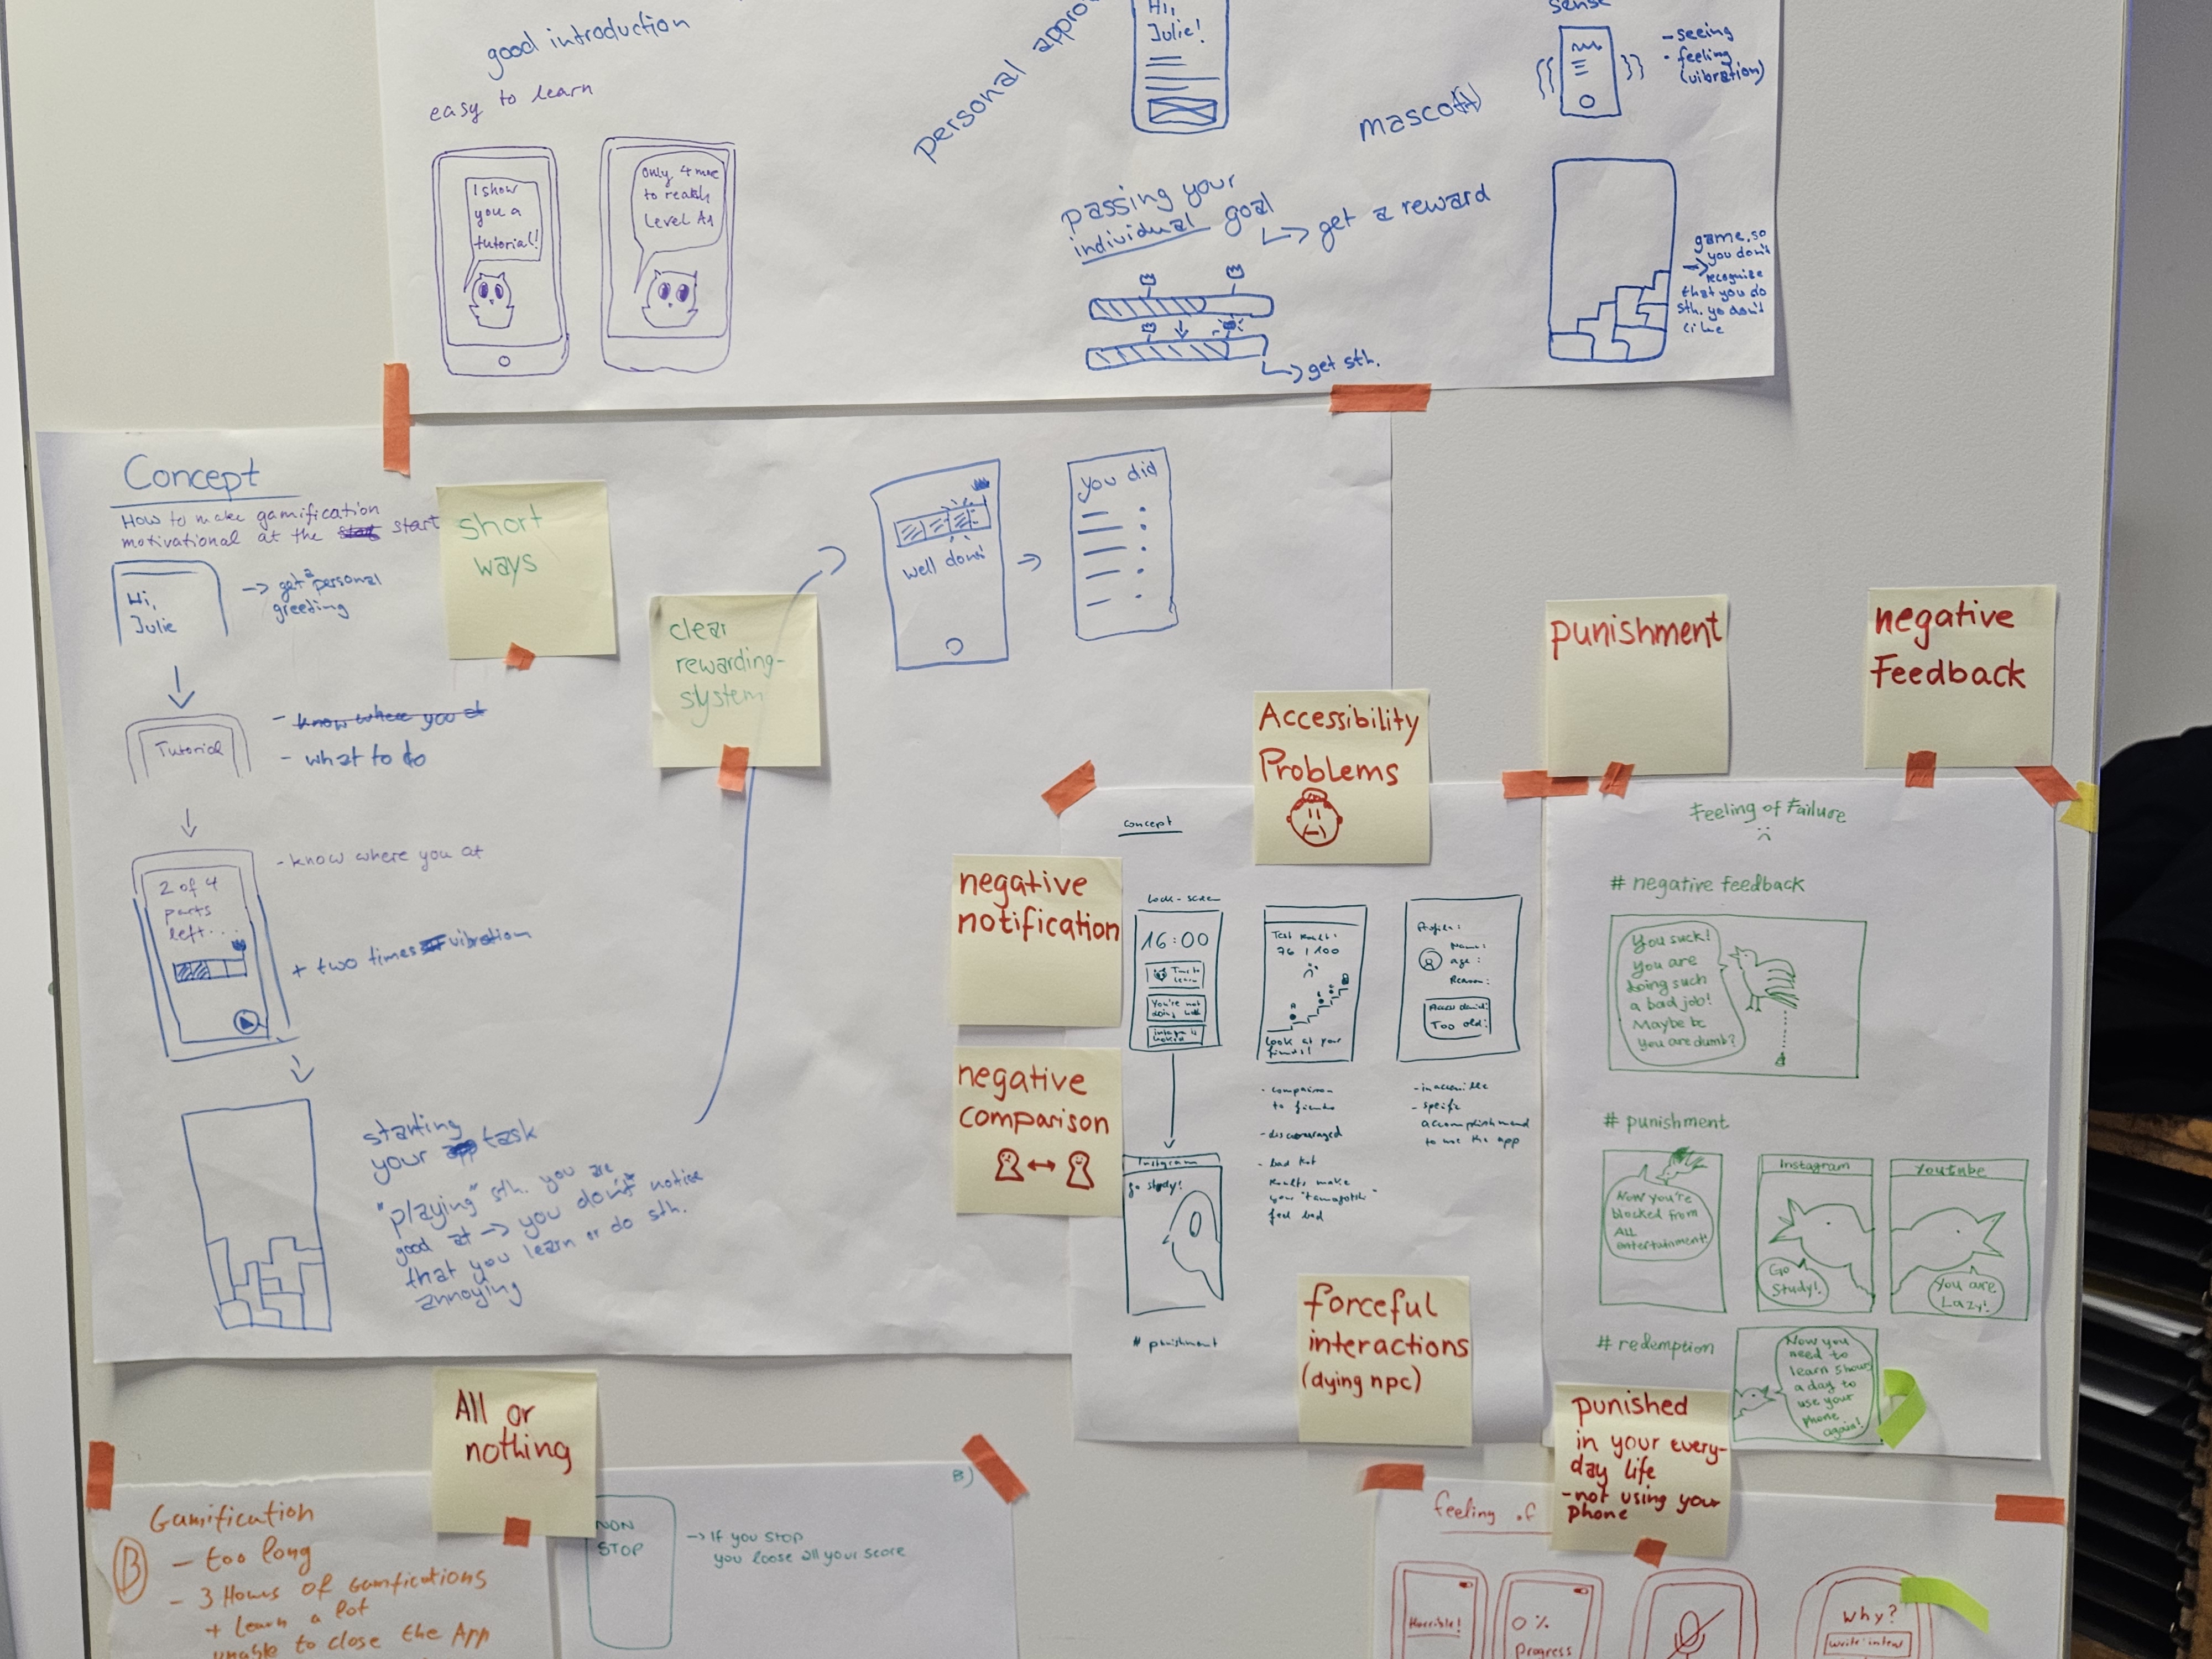 good introduction
easy to learn
I show
you a
tutorial!
Only 4 more
to reach
Level A1
personal
Hi,
Julie!
mascot(t)
sense
- seeing
- feeling
(vibration)
passing your
individual goal
get a reward
get sth.
game, so
you don't
recognize
that you do
sth. yo don't
like
Concept
How to make gamification
motivational at the start
Hi,
Julie
get a personal
greeting
short
ways
Tutorial
- know where you at
- what to do
2 of 4
parts
left...
- know where you at
+ two times vibration
starting
your task
"playing" sth. you are
good at → you don't notice
that you learn or do sth.
annoying
clear
rewarding-
system
well done!
you did
Accessibility
Problems
punishment
negative
Feedback
negative
notification
negative
comparison
concept
Lock-screen
16:00
Time to
learn
You're not
doing well
Instagram
go study!
# punishment
Test Result:
76 / 100
Look at your
friends!
- comparison
to friends
- discouraged
- bad test
results make
your "tamagotchi"
feel bad
Profile:
Name:
age:
Reason:
Access denied:
Too old!
- inaccessible
- specific
accomplishment
to use the app
forceful
interactions
(dying npc)
Feeling of Failure
# negative feedback
You suck!
You are
doing such
a bad job!
Maybe bc
you are dumb?
# punishment
Now you're
blocked from
ALL
entertainment!
Instagram
Go
Study!
Youtube
You are
Lazy!
# redemption
Now you
need to
learn 5 hours
a day to
use your
phone
again!
punished
in your every-
day life
- not using your
phone
All or
nothing
Gamification
B
- too long
- 3 Hours of Gamifications
+ Learn a lot
unable to close the App
B)
NON
STOP
→ If you stop
you loose all your score
feeling of
Horrible!
0 %
Progress
Why?